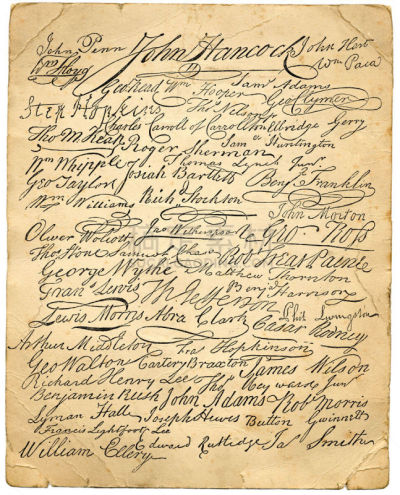 John Penn John Hancock John Hart
Wm Floyd Wm Paca
Geo Read Wm Hooper Saml Adams
Step Hopkins Thos Nelson jr Geo Clymer
Charles Carroll of Carrollton Elbridge Gerry
Tho M. Kean Roger Sherman Sam Huntington
Wm Whipple Thomas Lynch Junr
Geo Taylor Josiah Bartlett Benj Franklin
Wm Williams Richd Stockton
John Morton
Oliver Wolcott Jno Witherspoon Geo Ross
Thos Stone Samuel Chase Rob Treat Paine
George Wythe Matthew Thornton
Frans Lewis Th Jefferson Benj Harrison
Lewis Morris Abra Clark Phil Livingston
Caesar Rodney
Arthur Middleton Fras Hopkinson
Geo Walton Carter Braxton James Wilson
Richard Henry Lee Thos Heyward Junr
Benjamin Rush John Adams Rob Morris
Lyman Hall Joseph Hewes Button Gwinnett
Francis Lightfoot Lee
William Ellery Edward Rutledge Jas Smith